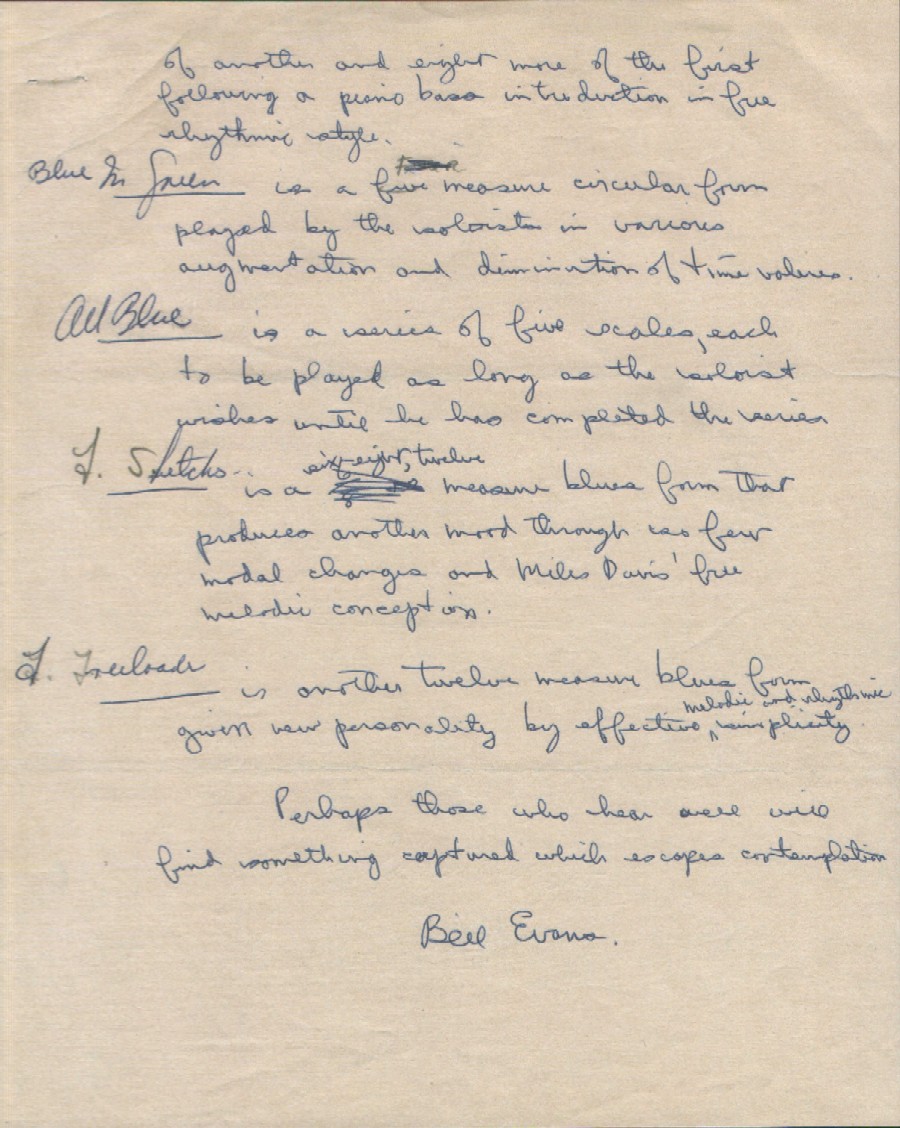 of another and eight more of the first
following a piano bass introduction in free
rhythmic style.
Blue In Green is a five measure circular form
played by the soloists in various
augmentation and diminution of time values.
All Blue is a series of five scales, each
to be played as long as the soloist
wishes until he has completed the series
F. Sketchs is a six-eight, twelve measure blues form that
produces another mood through its few
modal changes and Miles Davis' free
melodic conception.
F. Freeloader is another twelve measure blues form
given new personality by effective melodic and rhythmic simplicity.
Perhaps those who hear well will
find something captured which escapes contemplation
Bill Evans.